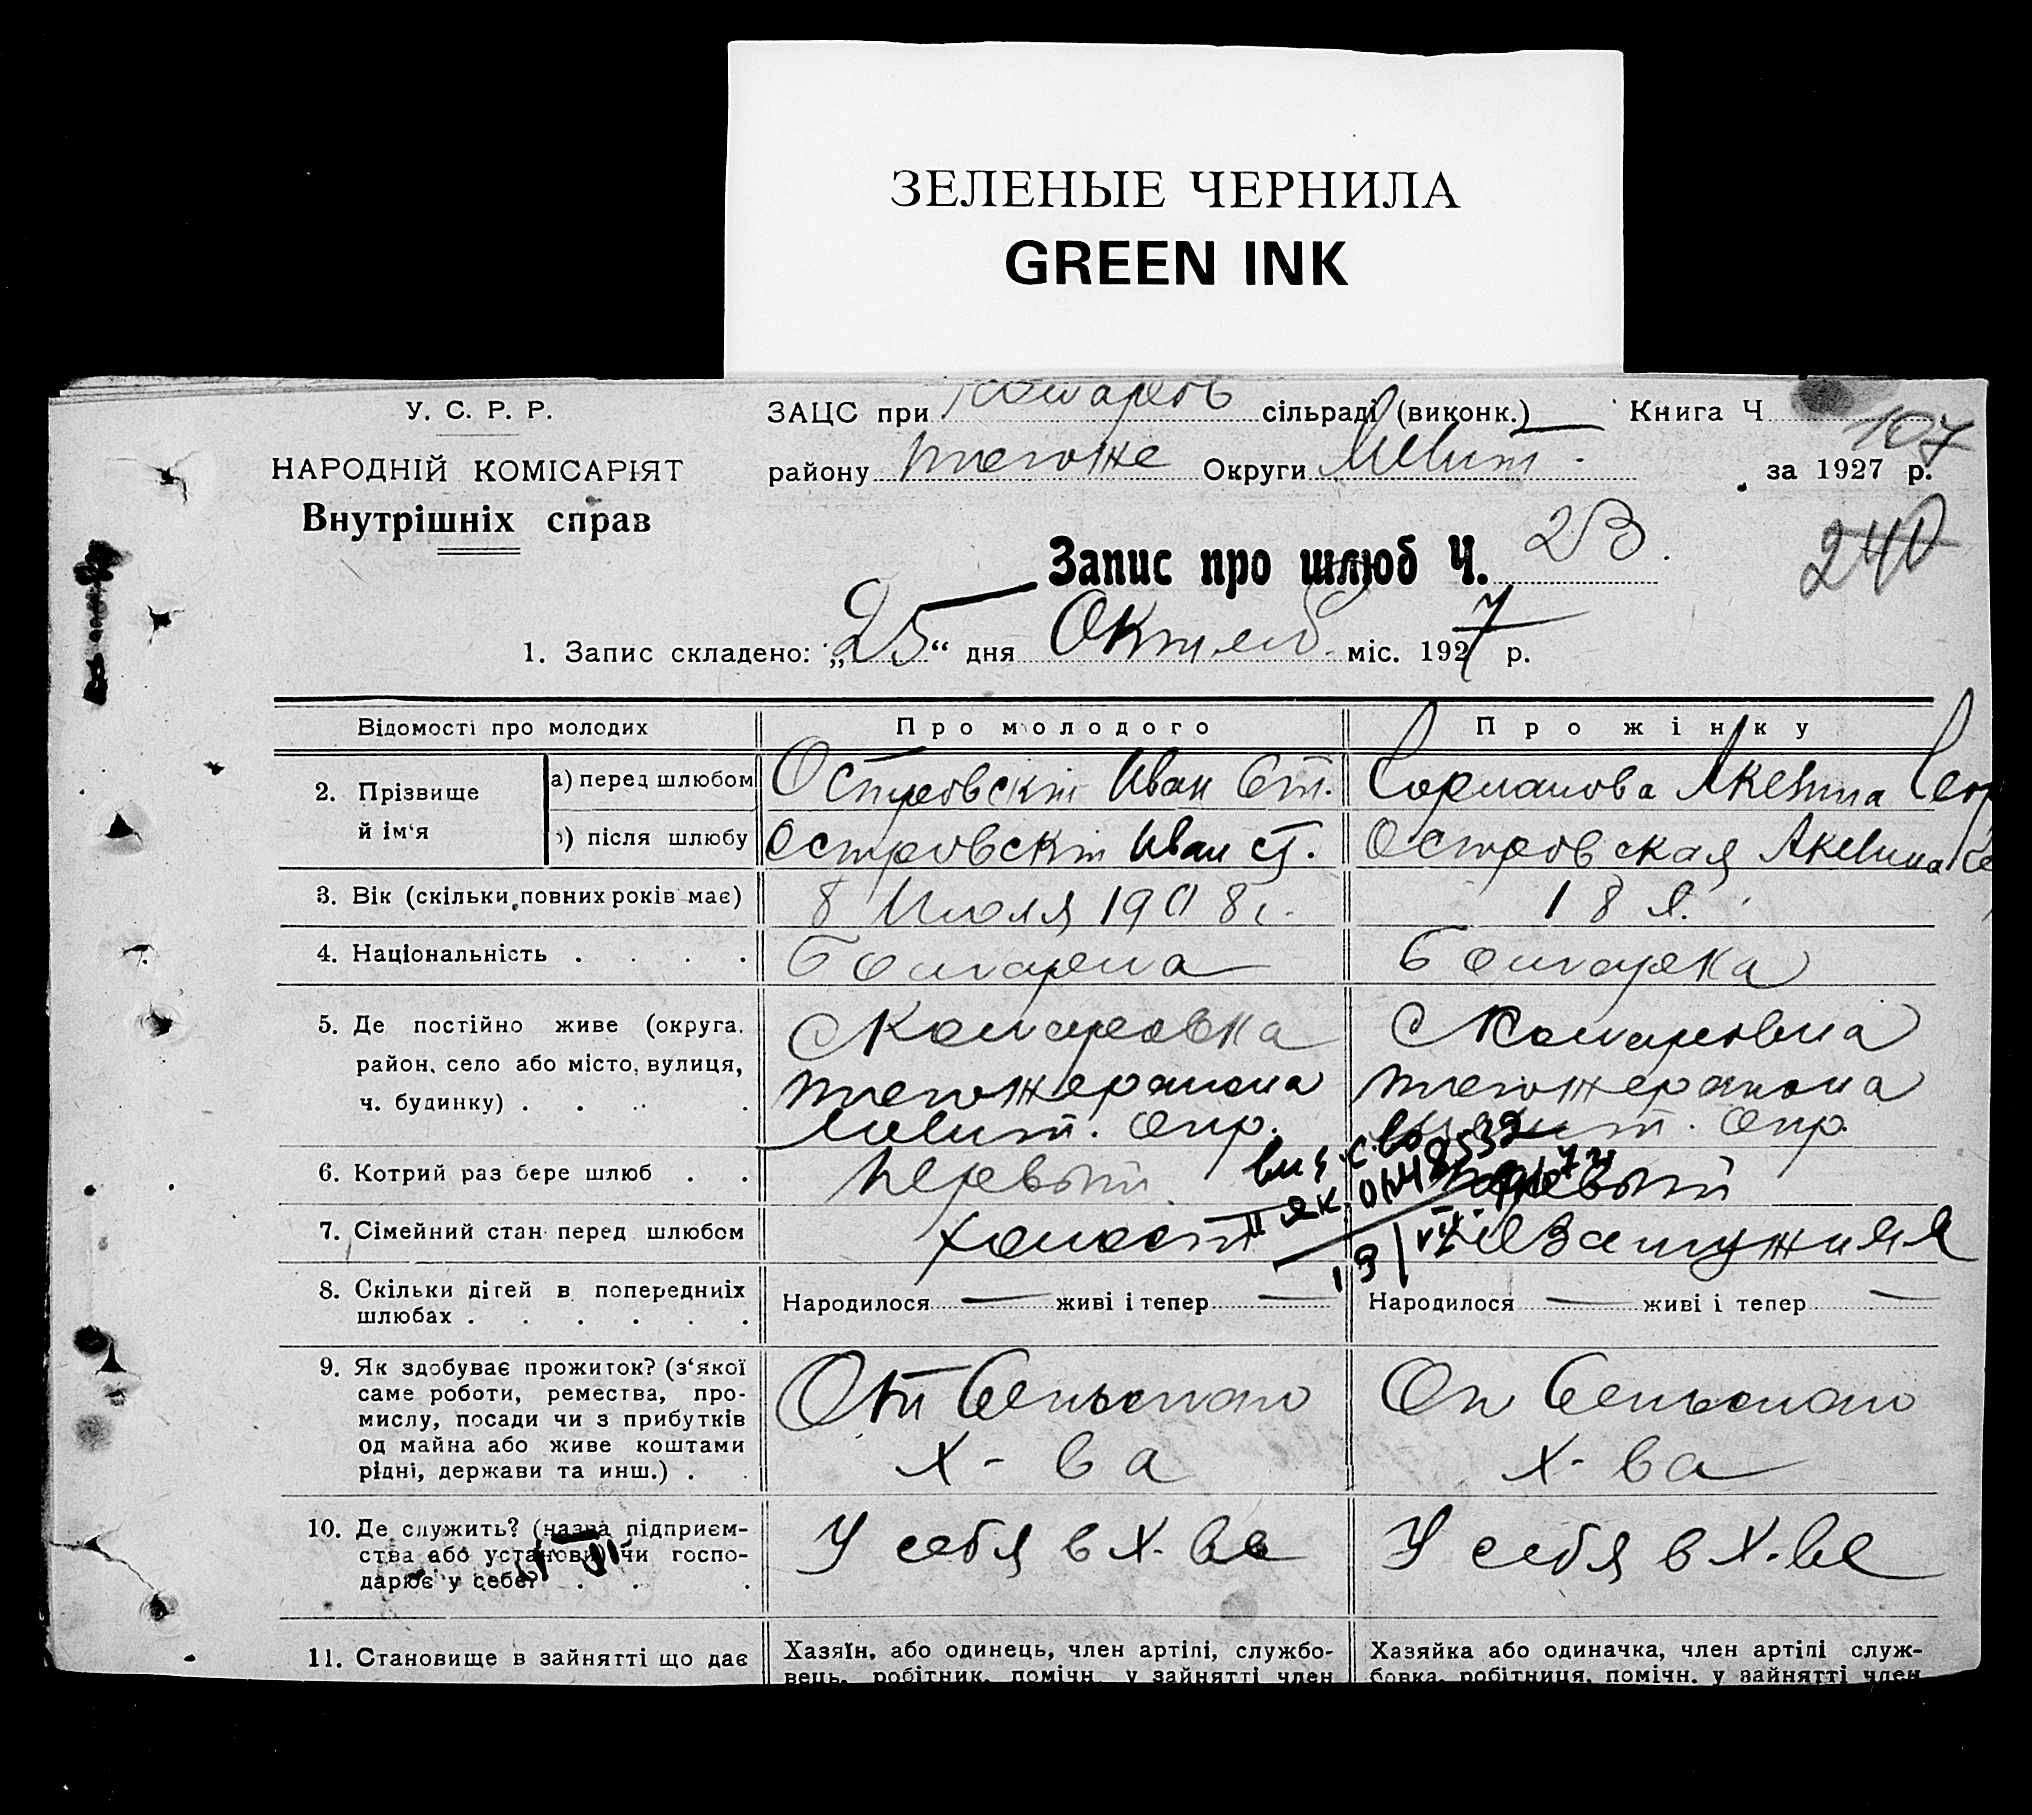 ЗЕЛЕНЫЕ ЧЕРНИЛА
GREEN INK
У. С. Р. Р.
НАРОДНІЙ КОМІСАРІЯТ
Внутрішніх справ
ЗАЦС при Комаров сільраді (виконк.) — Книга Ч
107
району Округи Меліт. за 1927 р.
240
Запис про шлюб Ч. 23.
1. Запис складено: „25“ дня Октяб. міс. 1927 р.
Відомості про молодих Про молодого Про жінку
2. Прізвище й ім‘я
а) перед шлюбом Островскій Иван Ст.
Акелина Геор
б) після шлюбу Островскій Иван Ст. Островская Акелина Ге
3. Вік (скільки повних років має) 8 Июля 1908 г. 18 л.
4. Національність . . . . Болгарка
5. Де постійно живе (округа, район, село або місто, вулиця, ч. будинку) . . . .
С Комаровка С Комаровка
Меліт. Окр. Меліт. Окр.
6. Котрий раз бере шлюб . . Первый Первый
7. Сімейний стан перед шлюбом холост Незамужняя
8. Скільки дітей в попередніх шлюбах . . . . . .
Народилося — живі і тепер — Народилося — живі і тепер —
9. Як здобуває прожиток? (з‘якої саме роботи, ремества, промислу, посади чи з прибутків од майна або живе коштами рідні, держави та инш.) . .
От Сельского От Сельского
Х-ва Х-ва
10. Де служить? (назва підприємства або установи) чи господарює у себе? . . .
У себя в Х-ве У себя в Х-ве
11. Становище в зайнятті що дає
Хазяїн, або одинець, член артілі, службовець, робітник, помічн. у зайнятті член
Хазяйка або одиначка, член артілі службовка, робітниця, помічн. у зайнятті член